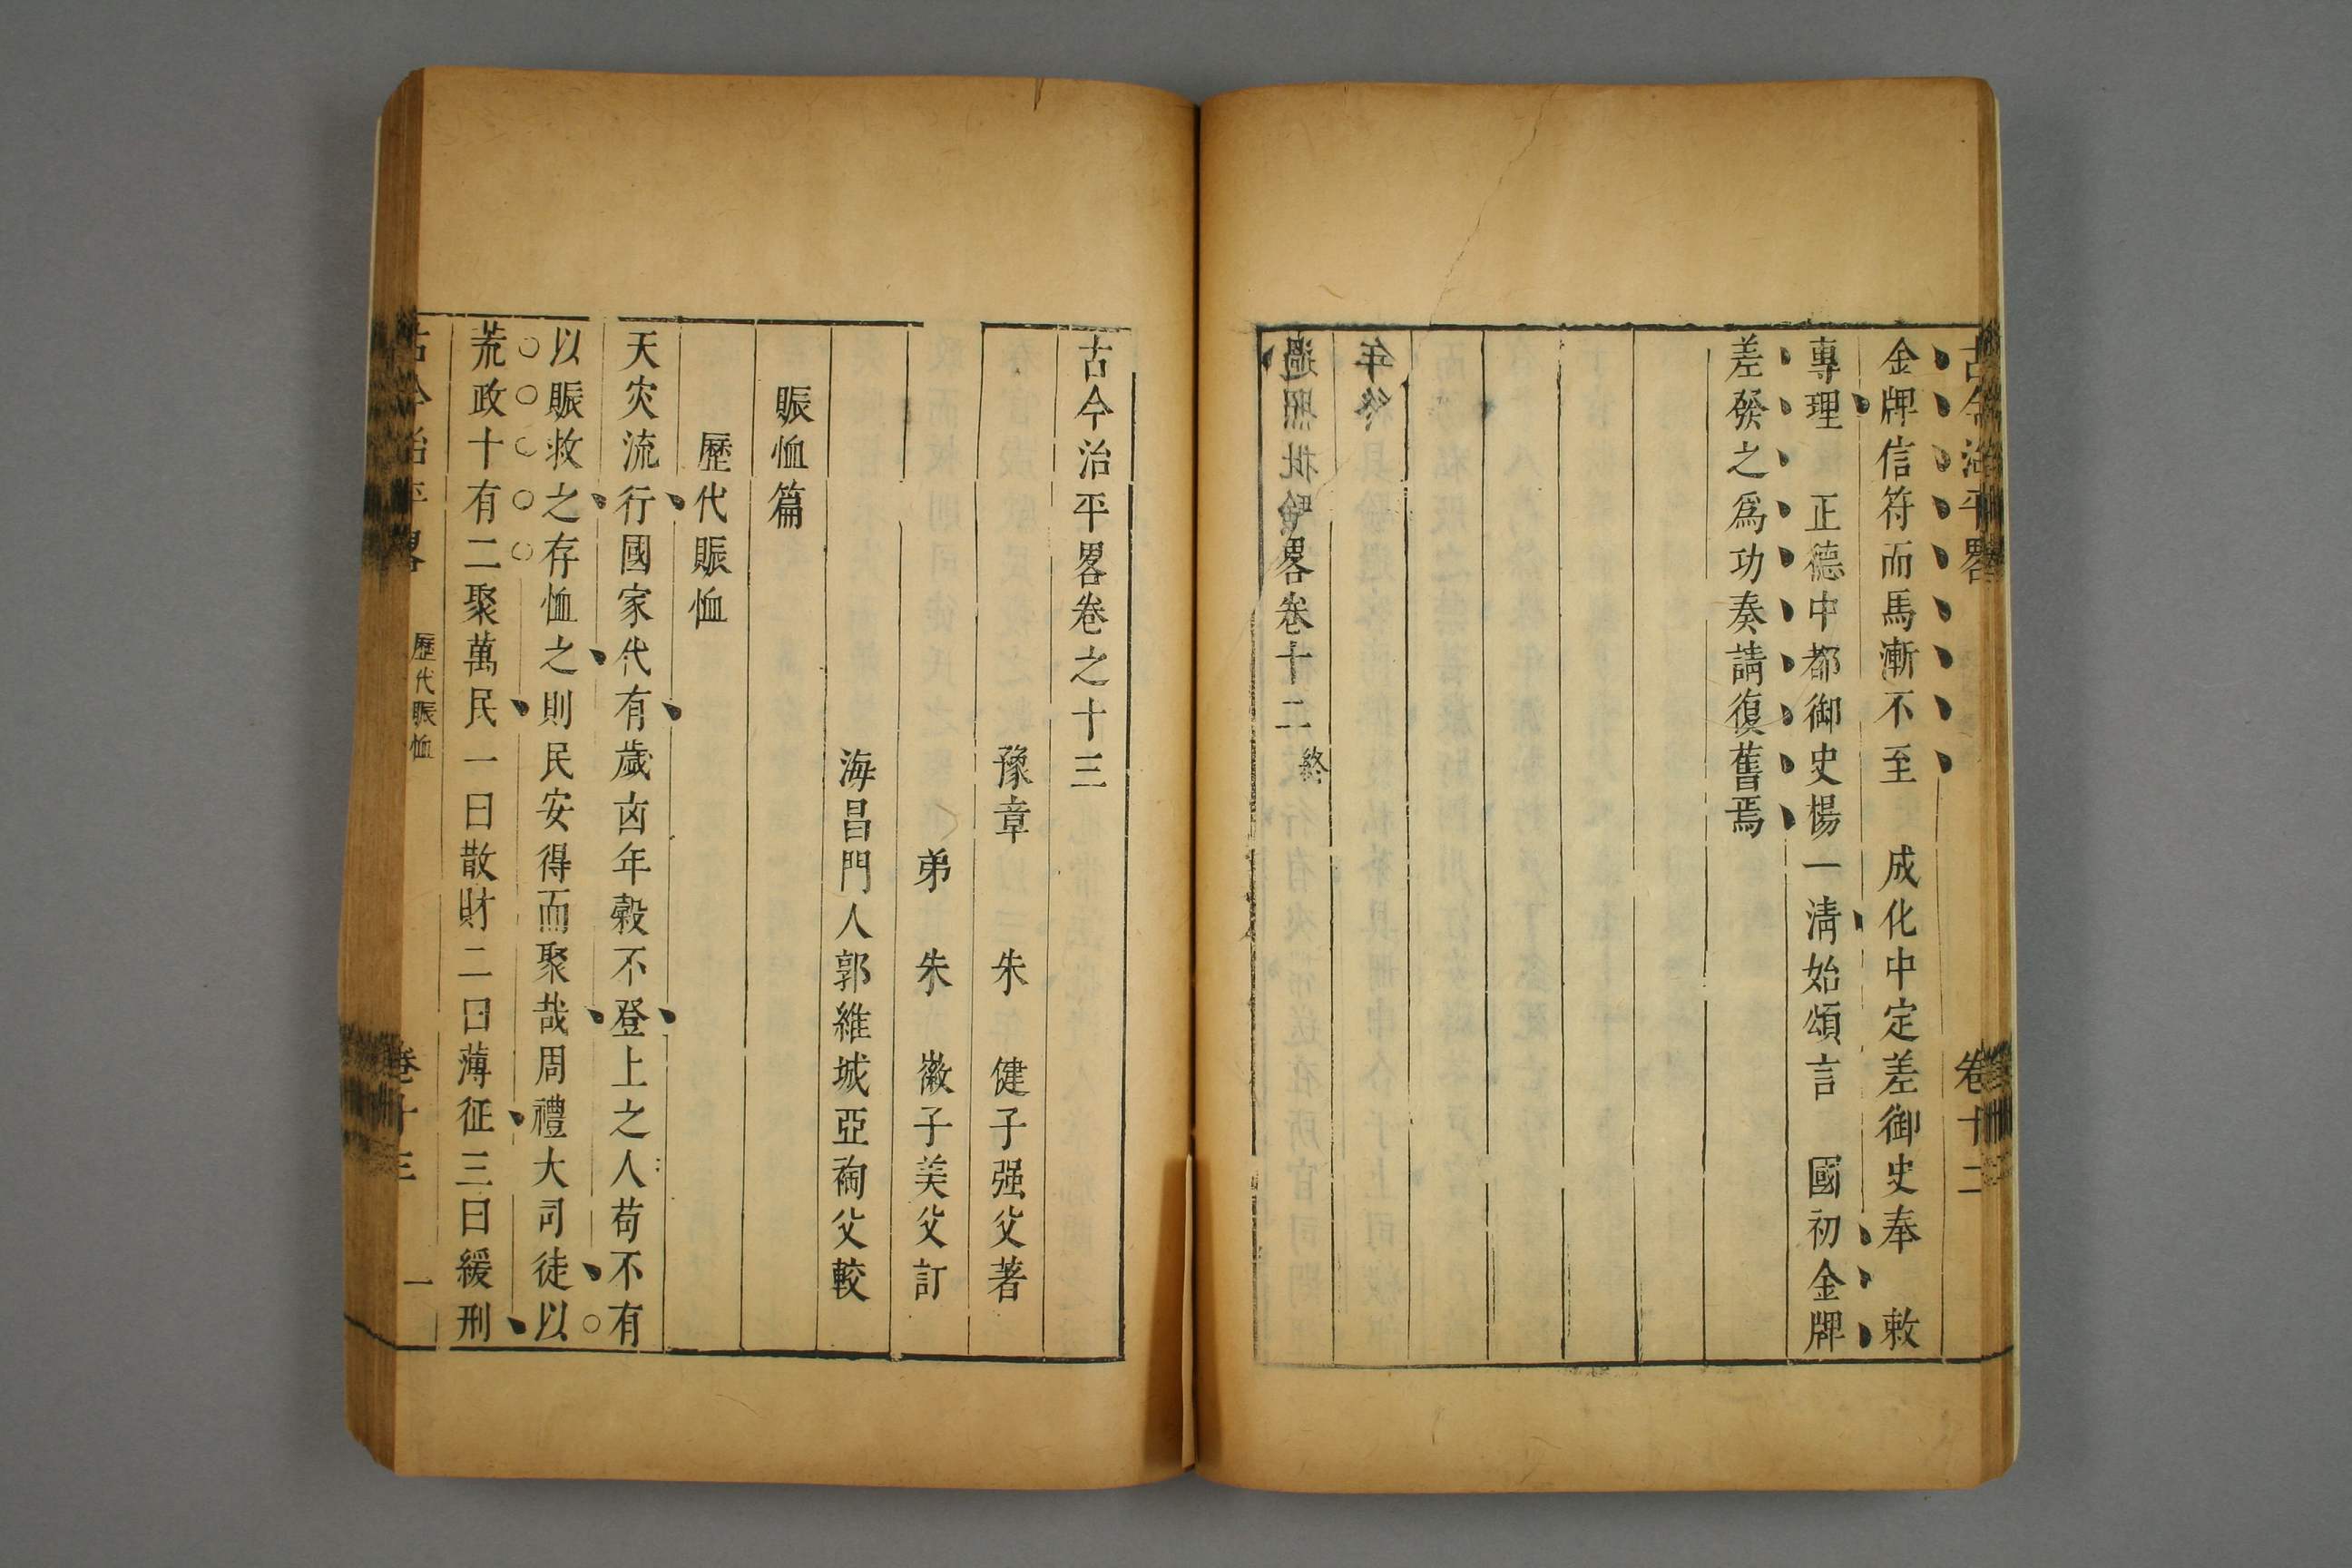 古今治平畧
卷十二
金牌信符而馬漸不至　成化中定差御史奉　敕
專理　正德中都御史楊一淸始頌言　國初金牌
差發之爲功奏請復舊焉
畧卷十二終
古今治平畧卷之十三
豫章　朱　健子强父著
弟　朱　徽子美父訂
海昌門人郭維城亞裪父較
賑恤篇
歷代賑恤
天灾流行國家代有歲凶年榖不登上之人苟不有
以賑救之存恤之則民安得而聚哉周禮大司徒以
荒政十有二聚萬民一曰散財二曰薄征三曰緩刑
古今治平畧
歷代賑恤
卷十三
一